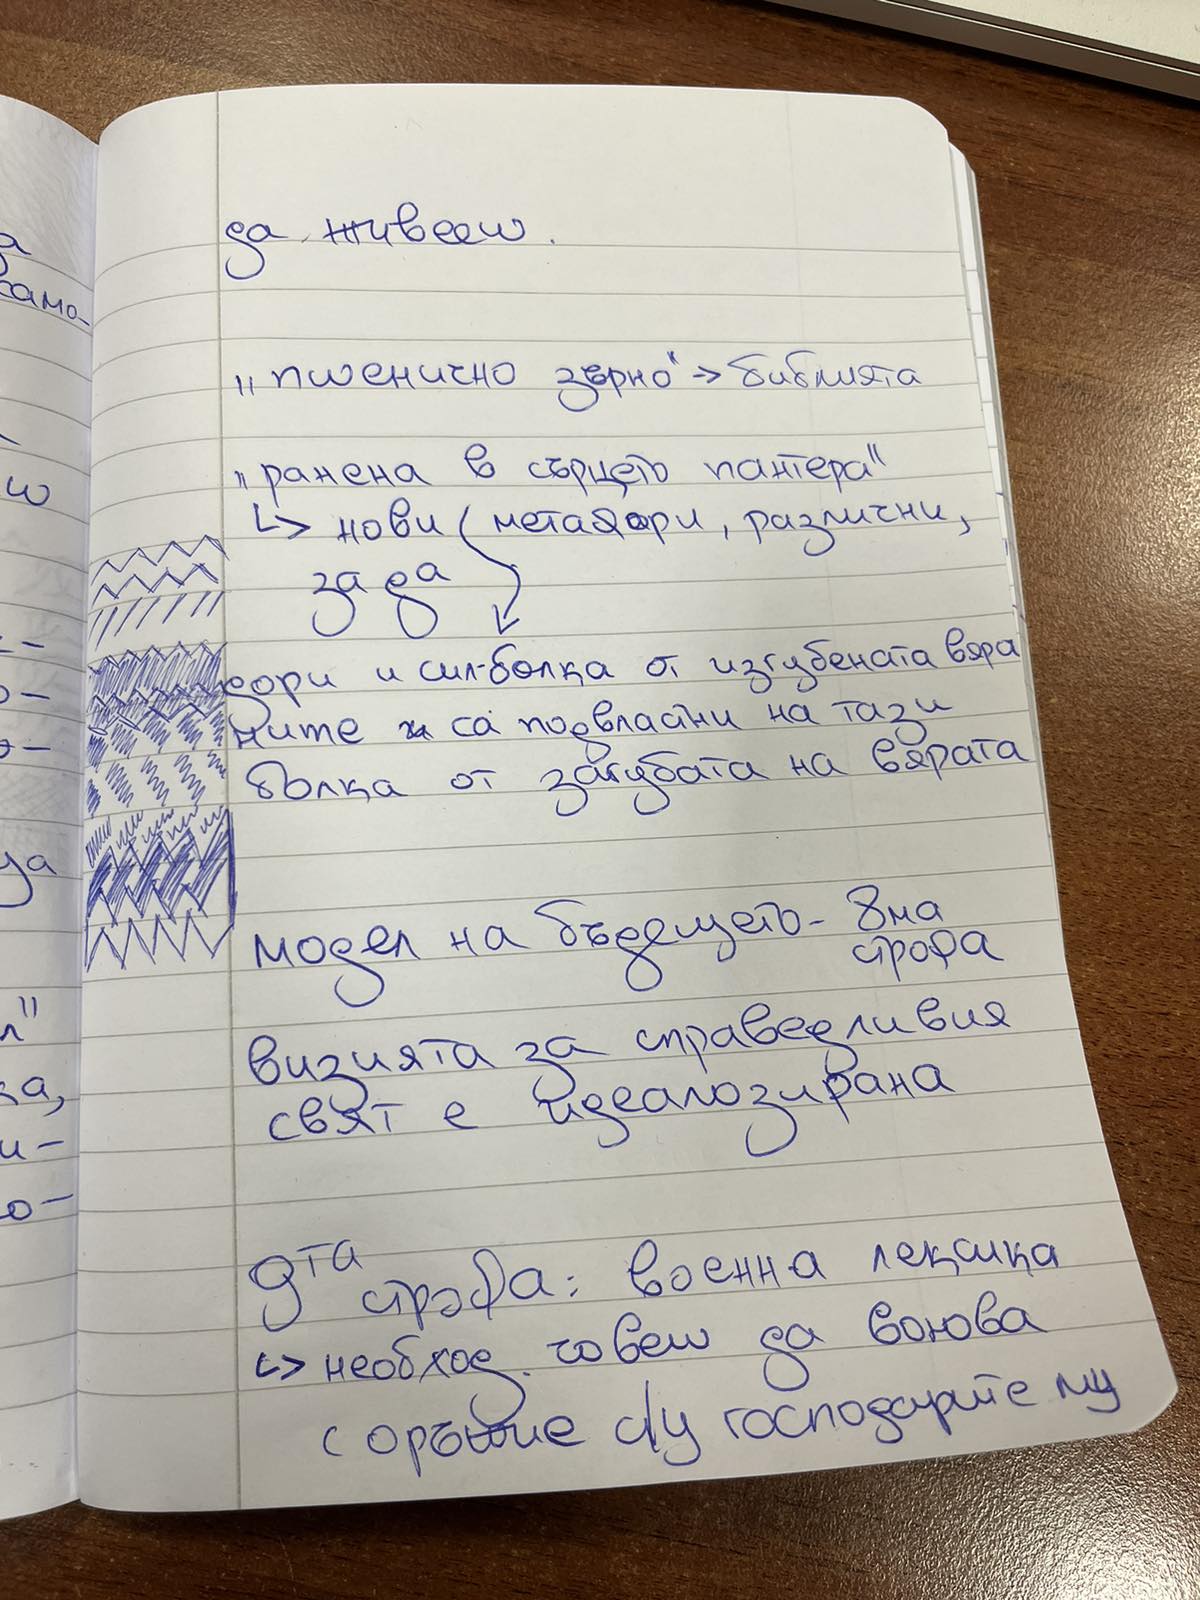 да живееш.
„пшенично зърно“ → библията
„ранена в сърцето пантера“
↳ нови (метафори, различни,
за да
дори и сил- болка от изгубената вяра
ните са подвластни на тази
болка от загубата на вярата
модел на бъдещето - 8ма
строфа
визията за справедливия
свят е идеалозирана
9та строфа: военна лексика
↳ необход. човек да воюва
с оръжие с/у господарите му